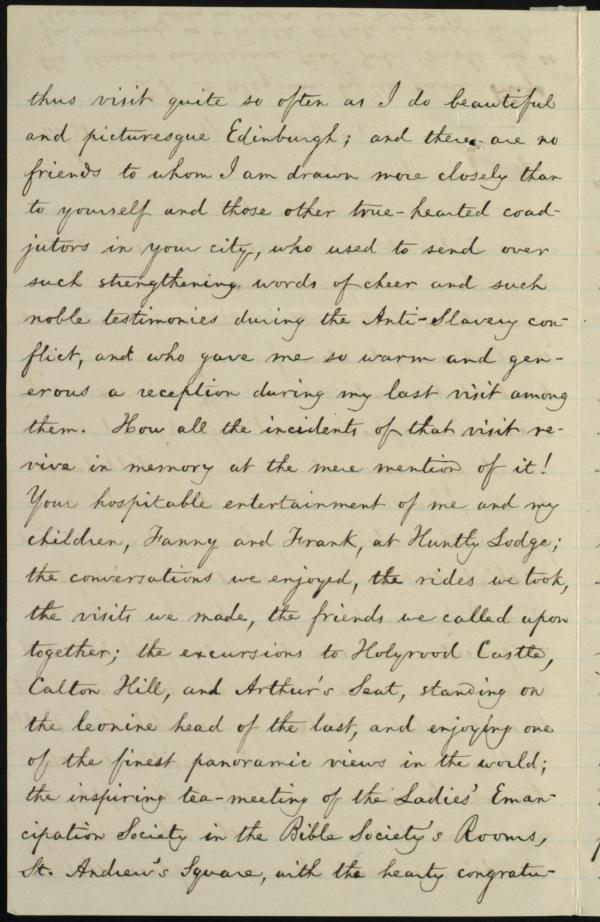 thus visit quite so often as I do beautiful
and picturesque Edinburgh; and there are no
friends to whom I am drawn more closely than
to yourself and those other true-hearted coad-
jutors in your city, who used to send over
such strengthening words of cheer and such
noble testimonies during the Anti-Slavery con-
flict, and who gave me so warm and gen-
erous a reception during my last visit among
them. How all the incidents of that visit re-
vive in memory at the mere mention of it!
Your hospitable entertainment of me and my
children, Fanny and Frank, at Huntly Lodge;
the conversations we enjoyed, the rides we took,
the visits we made, the friends we called upon
together; the excursions to Holyrood Castle,
Calton Hill, and Arthur's Seat, standing on
the leonine head of the last, and enjoying one
of the finest panoramic views in the world;
the inspiring tea-meeting of the Ladies' Eman-
cipation Society in the Bible Society's Rooms,
St. Andrew's Square, with the hearty congratu-